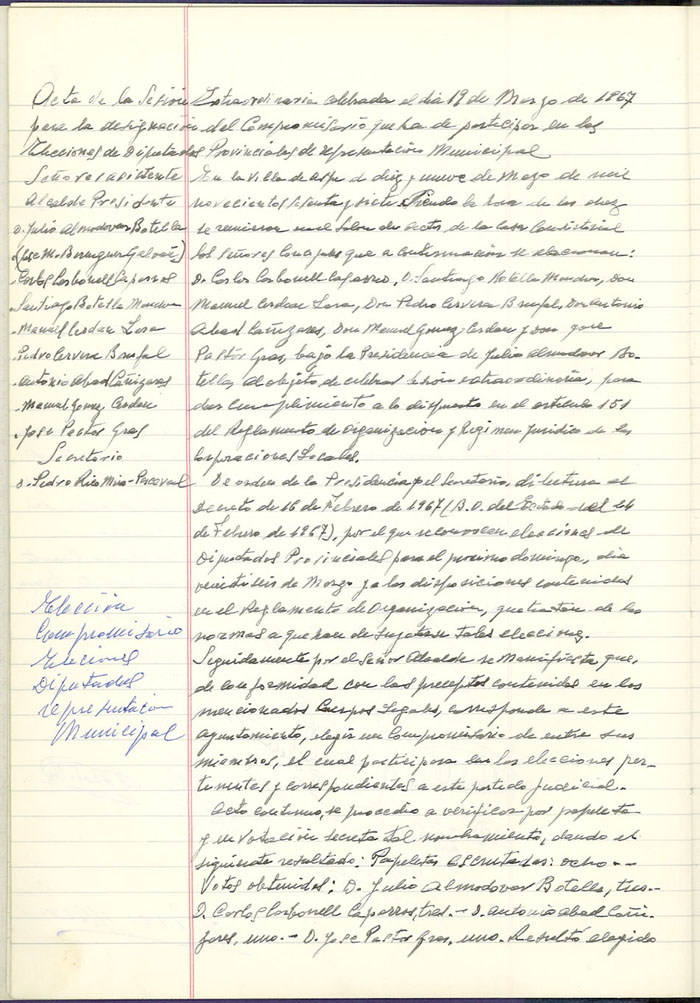 Acta de la Sesión Extraordinaria celebrada el dia 19 de Marzo de 1967
para la designación del Compromisario que ha de participar en las
Elecciones de Diputados Provinciales de representación Municipal
Señores asistente
Alcalde Presidente
D. Julio Almodovar Botella
(Jose M. Berenguer Galvañ)
Carlos Carbonell Caparros
Santiago Botella
Manuel Cerdan Lora
Pedro Cervera Brufal
Antonio Abad Cañizares
Manuel Gomez Cerdan
Jose Pastor Gras
Secretario
D. Pedro Rico Mira-Perceval
Elección
Compromisario
Elecciones
Diputados
representación
Municipal
En la Villa de Aspe a diez y nueve de Marzo de mil
novecientos sesenta y siete. Siendo la hora de las diez
se reunieron en el Salon de actos, de la casa Consistorial
los señores Concejales que a continuación se relacionan:
D. Carlos Carbonell Caparros, D. Santiago Botella Don
Manuel Cerdan Lora, Don Pedro Cervera Brufal, Don Antonio
Abad Cañizares, Don Manuel Gomez Cerdan y Don Jose
Pastor Gras, bajo la Presidencia de Julio Almodovar Bo-
tella, al objeto de celebrar sesión extraordinaria, para
dar cumplimiento a lo dispuesto en el articulo 151
del Reglamento de Organización y Regimen Juridico de las
Corporaciones Locales.
De orden de la Presidencia, el Secretario, di lectura al
Decreto de 16 de Febrero de 1967 (B.O. del Estado del
de Febrero de 1967), por el que se convocan elecciones de
Diputados Provinciales para el proximo domingo, dia
veintiseis de Marzo y a las disposiciones contenidas
en el Reglamento de Organización, que tratan de las
normas a que han de sujetarse tales elecciones.
Seguidamente por el Señor Alcalde se manifiesta, que,
de conformidad con los preceptos contenidos en los
mencionados Cuerpos Legales, corresponde a este
ayuntamiento, elegir un Compromisario de entre sus
miembros, el cual participara en las elecciones per-
tinentes y correspondientes a este partido Judicial.
Acto continuo, se procedio a verificar por papeleta
y en votación secreta tal nombramiento, dando el
siguiente resultado: Papeletas escrutadas: ocho.-
Votos obtenidos: D. Julio Almodovar Botella, tres.-
D. Carlos Carbonell Caparros, tres.- D. Antonio Abad Cañi-
zares, uno.- D. Jose Pastor Gras, uno. Resultó elegido